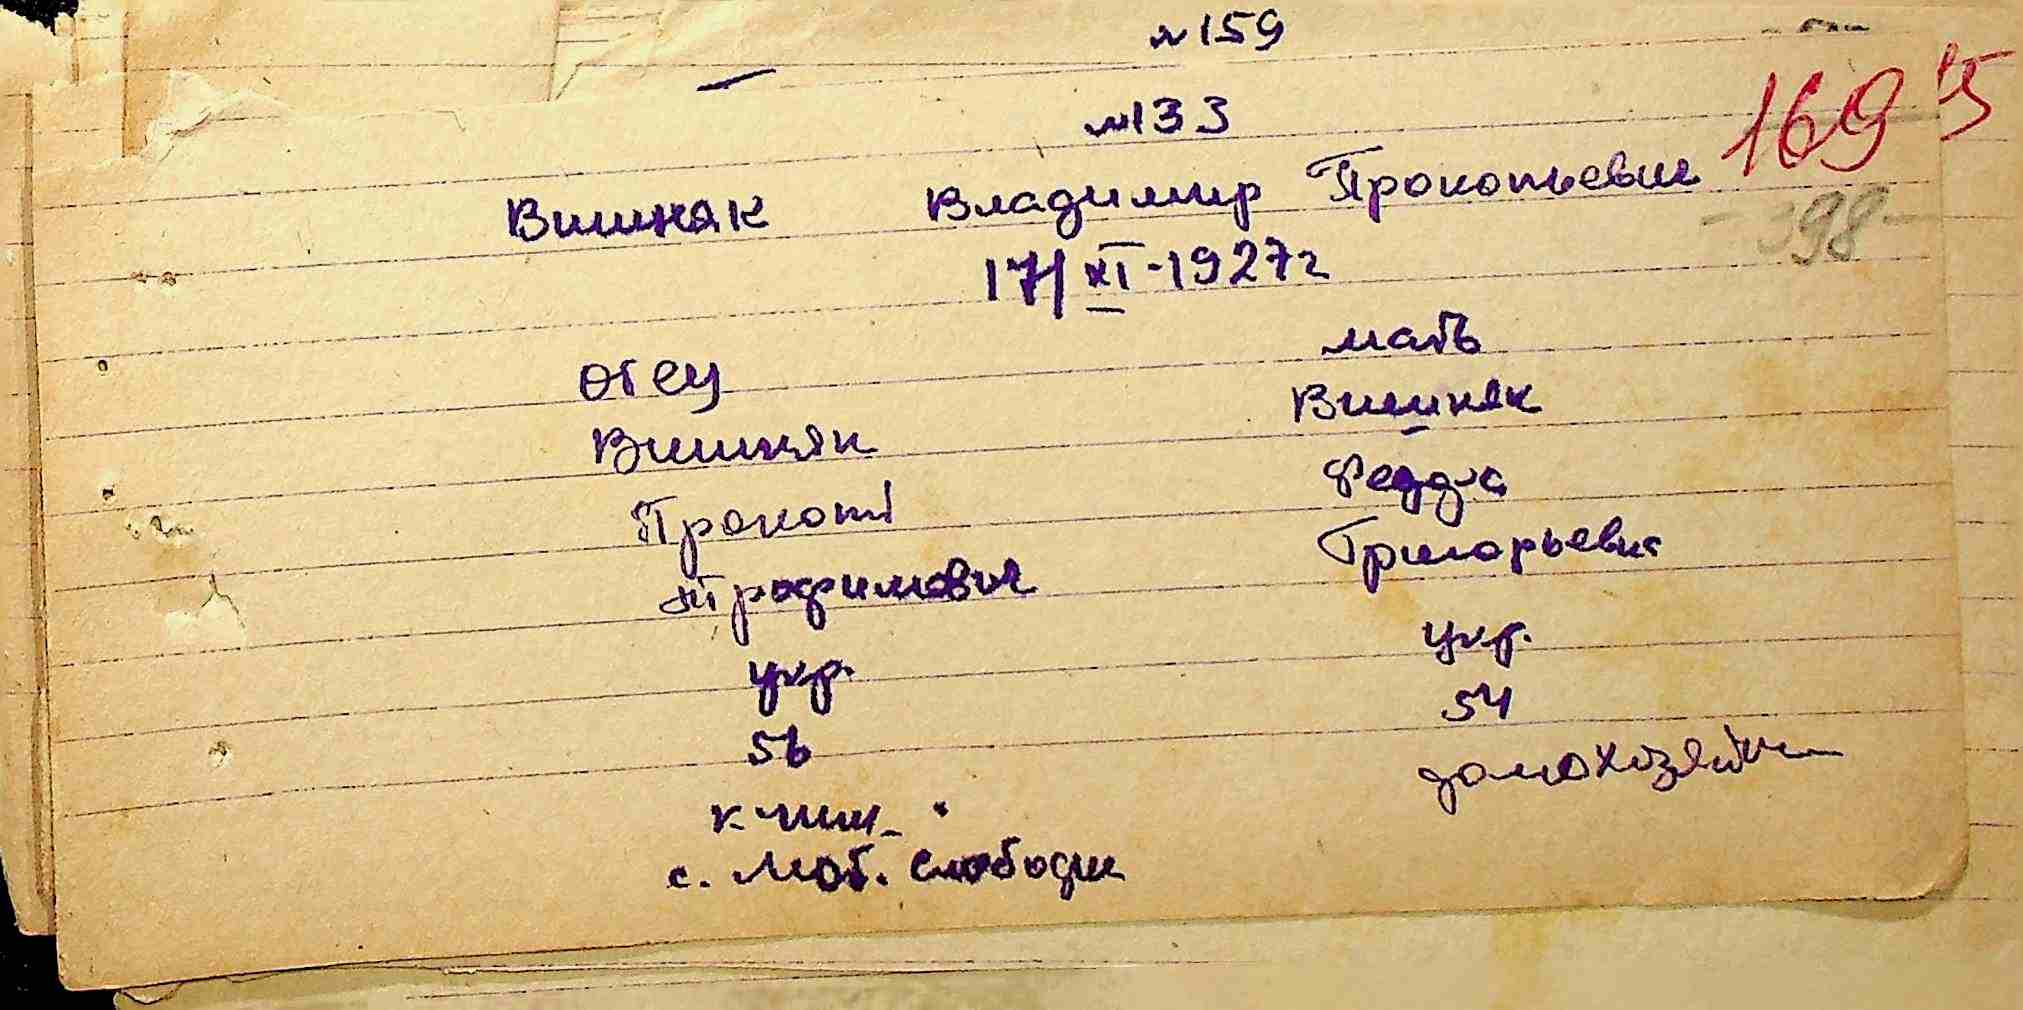 №159
№133
169 15
Вишняк Владимир Прокопьевич
- 398 -
17/XI-1927г
отец мать
Вишняк Вишняк
Прокоп
Трофимович Григорьевна
укр. укр.
56 54
домохозяйка
с. Слободки